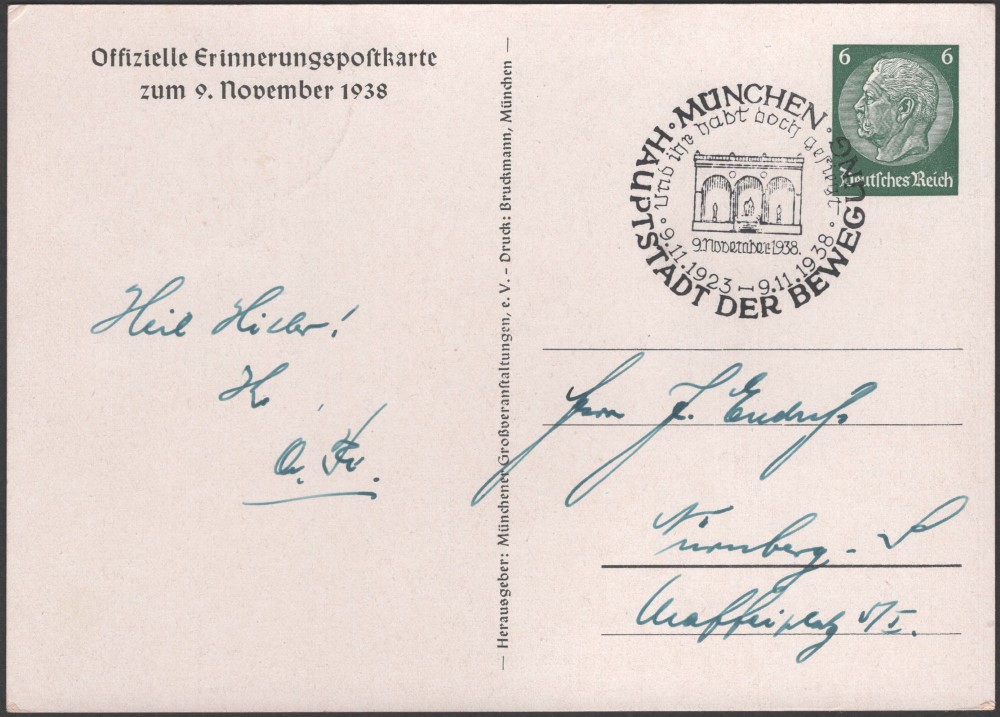 Offizielle Erinnerungspostkarte
zum 9. November 1938
Heil Hitler!
Herausgeber: Münchener Großveranstaltungen, e. V. – Druck: Bruckmann, München
6 6
Deutsches Reich
MÜNCHEN · HAUPTSTADT DER BEWEGUNG ·
Und ihr habt doch gesiegt
9. November 1938.
9.11.1923 – 9.11.1938
Herrn J. Endreß
Nürnberg - S
Maffeiplatz 5/I.